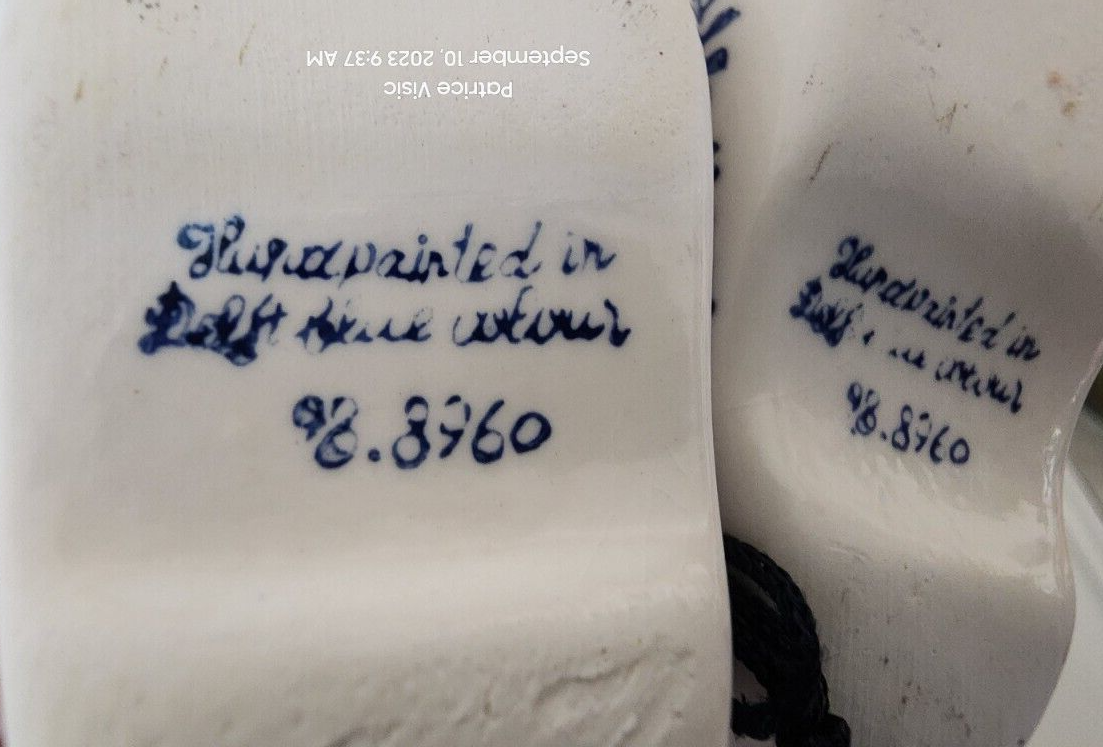 September 10, 2023 9:37 AM
Patrice Visic
Handpainted in
Delft blue colour
98.8960
Handpainted in
Delft colour
98.8960